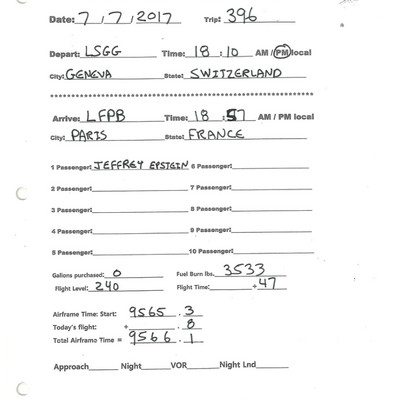 Date: 7/7/2017 Trip: 396
Depart: LSGG Time: 18:10 AM / PM local
City: GENEVA State: SWITZERLAND
Arrive: LFPB Time: 18:57 AM / PM local
City: PARIS State: FRANCE
1 Passenger: JEFFREY EPSTEIN 6 Passenger:
2 Passenger: 7 Passenger:
3 Passenger: 8 Passenger:
4 Passenger: 9 Passenger:
5 Passenger: 10 Passenger:
Gallons purchased: 0 Fuel Burn lbs. 3533
Flight Level: 240 Flight Time: +47
Airframe Time: Start: 9565.3
Today's flight: + .8
Total Airframe Time = 9566.1
Approach Night VOR Night Lnd